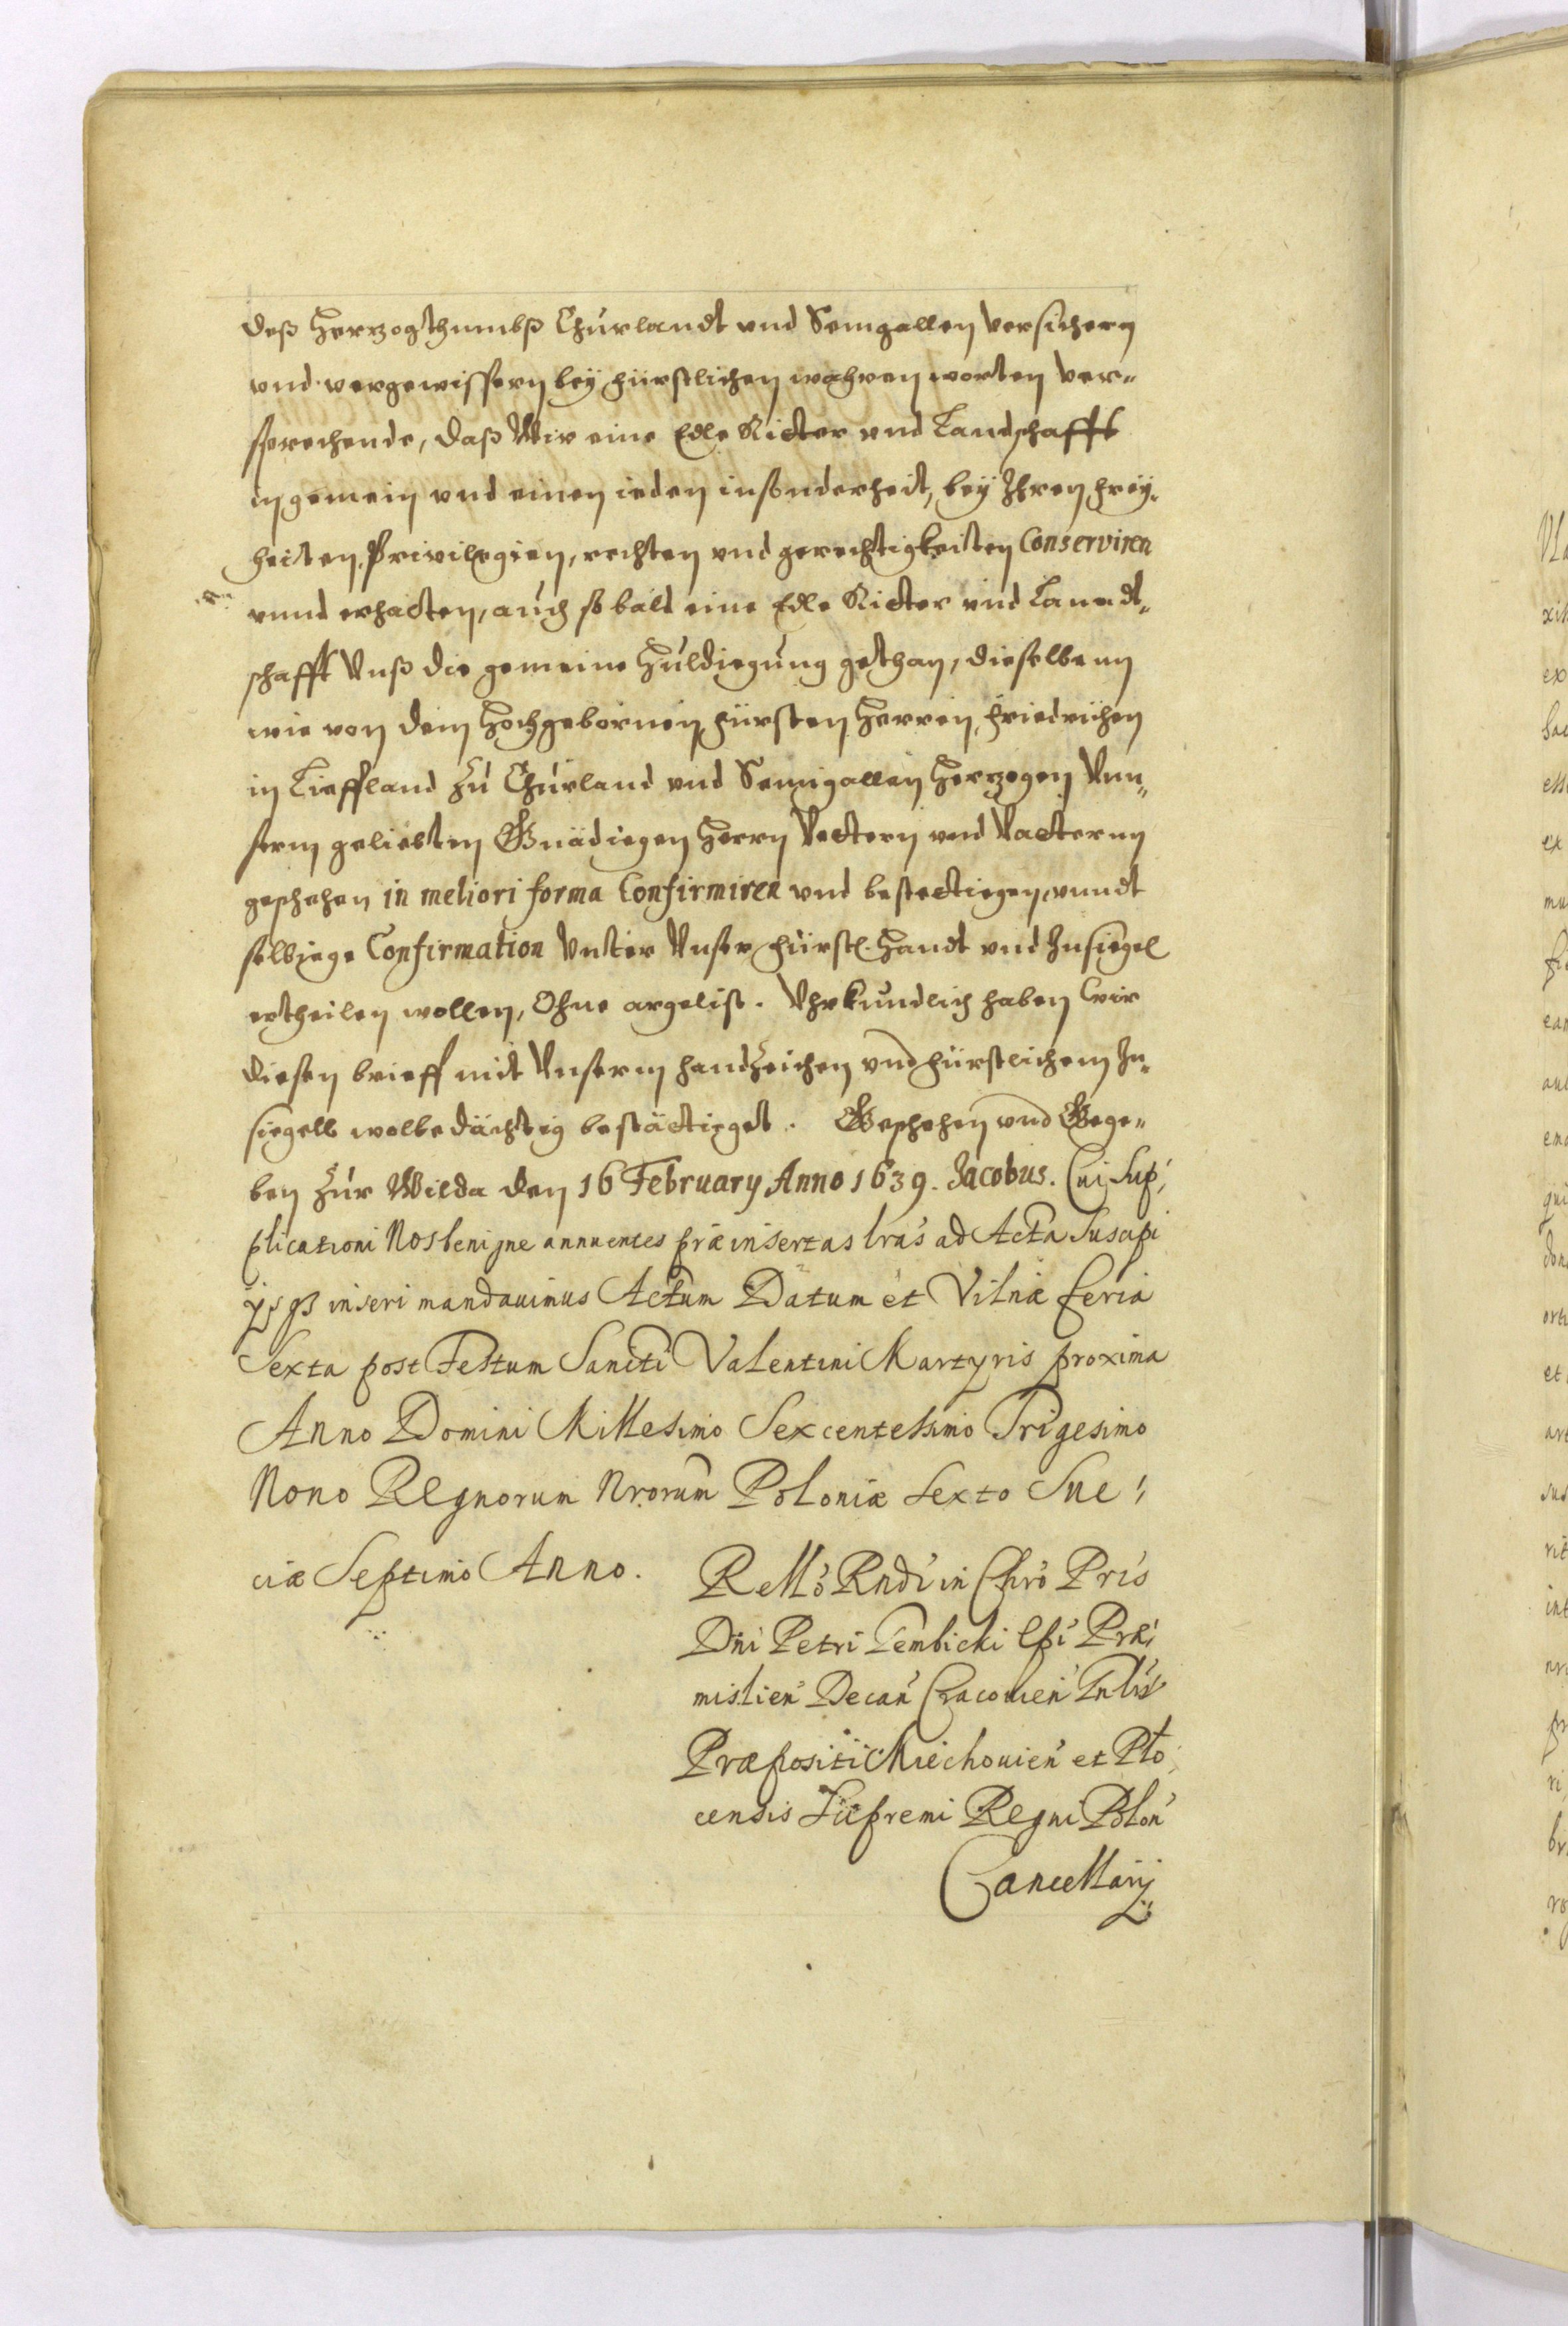 deß Herzogthumbß Churlandt vnd Semgallen versichern
vnd vergewissern bey fürstlichen wahren worten ver-
sprechende, daß Wir eine Edle Ritter vnd Landschafft
in gemein vnd einen ieden insonderheit, bey Ihren frey-
heiten, Privilegien, rechten vnd gerechtigkeiten Conserviren
vnnd erhalten, auch so bald eine Edle Ritter vnd Lanndt-
schafft Vnß die gemeine Huldiegung gethan, dieselbenn
wie von dem Hochgebornen Fürsten Herren, Friedrichen
in Lieffland zu Churland vnd Semigallen Herzogen Vnn-
serm geliebten Gnädiegen Herrn Vettern vnd Vatternn
geschehen in meliori forma Confirmiren vnd bestettiegen, vnndt
selbiege Confirmation Vnter Vnser fürstl. Handt vnd Insiegel
ertheilen wollen, Ohne argelist. Vhrkundlich haben wir
diesen brieff mit Vnserm handzeichen vnd fürstlichem In-
siegell wolbedächtig bestättieget. Geschehen vnd Gege-
ben zur Wilda den 16 February Anno 1639. Jacobus. Cui Sup-
plicationi Nos benigne annuentes præinsertas lras ad Acta Suscipi
inseri mandauimus Actum Datum et Vilniæ feria
Sexta post Festum Sancti Valentini Martyris proxima
Anno Domini Millesimo Sexcentesimo Trigesimo
Nono Regnorum Nrorum Poloniæ Sexto Sue-
ciæ Septimo Anno.
Rello Rndi in Chro Pris
Dni Petri Gembicki Epi Præ-
mislien Decan Cracouien
Præpositi Miechouien et Plo-
censis Supremi Regni Polon
Cancellarij